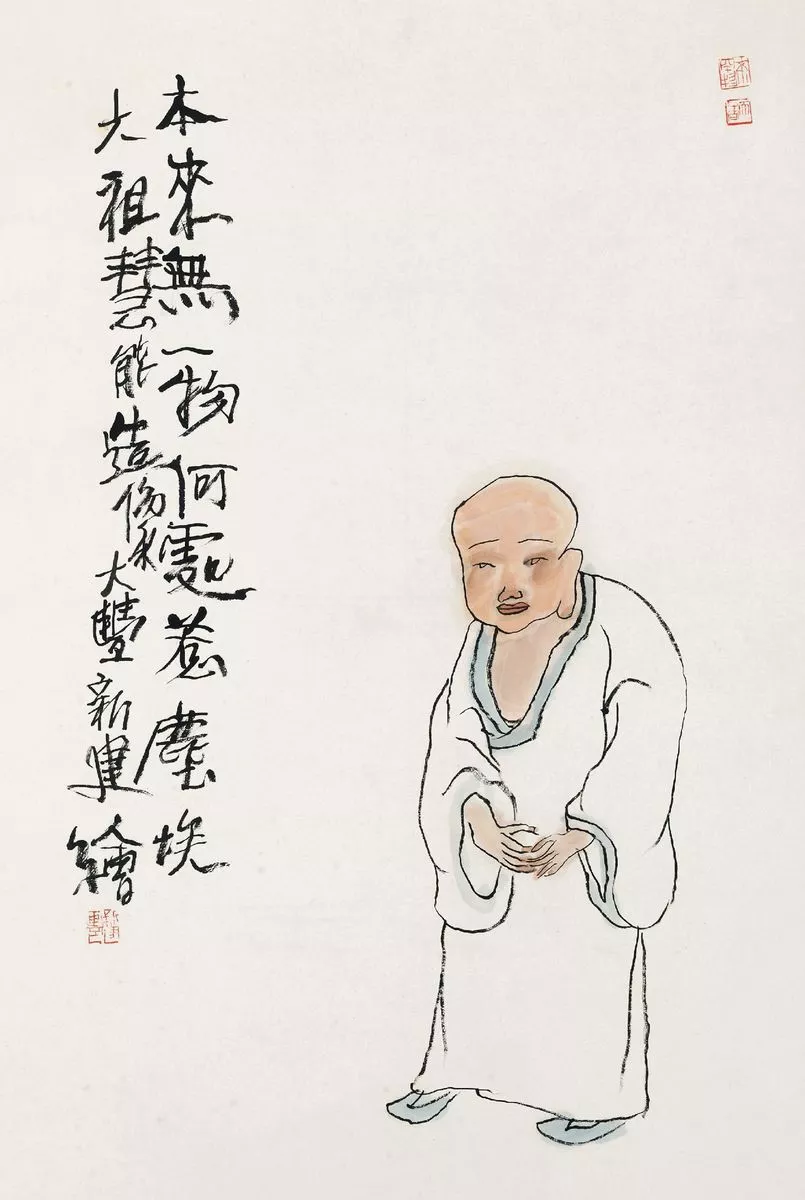 本來無一物何處惹塵埃
六祖慧能造像大豐新建繪